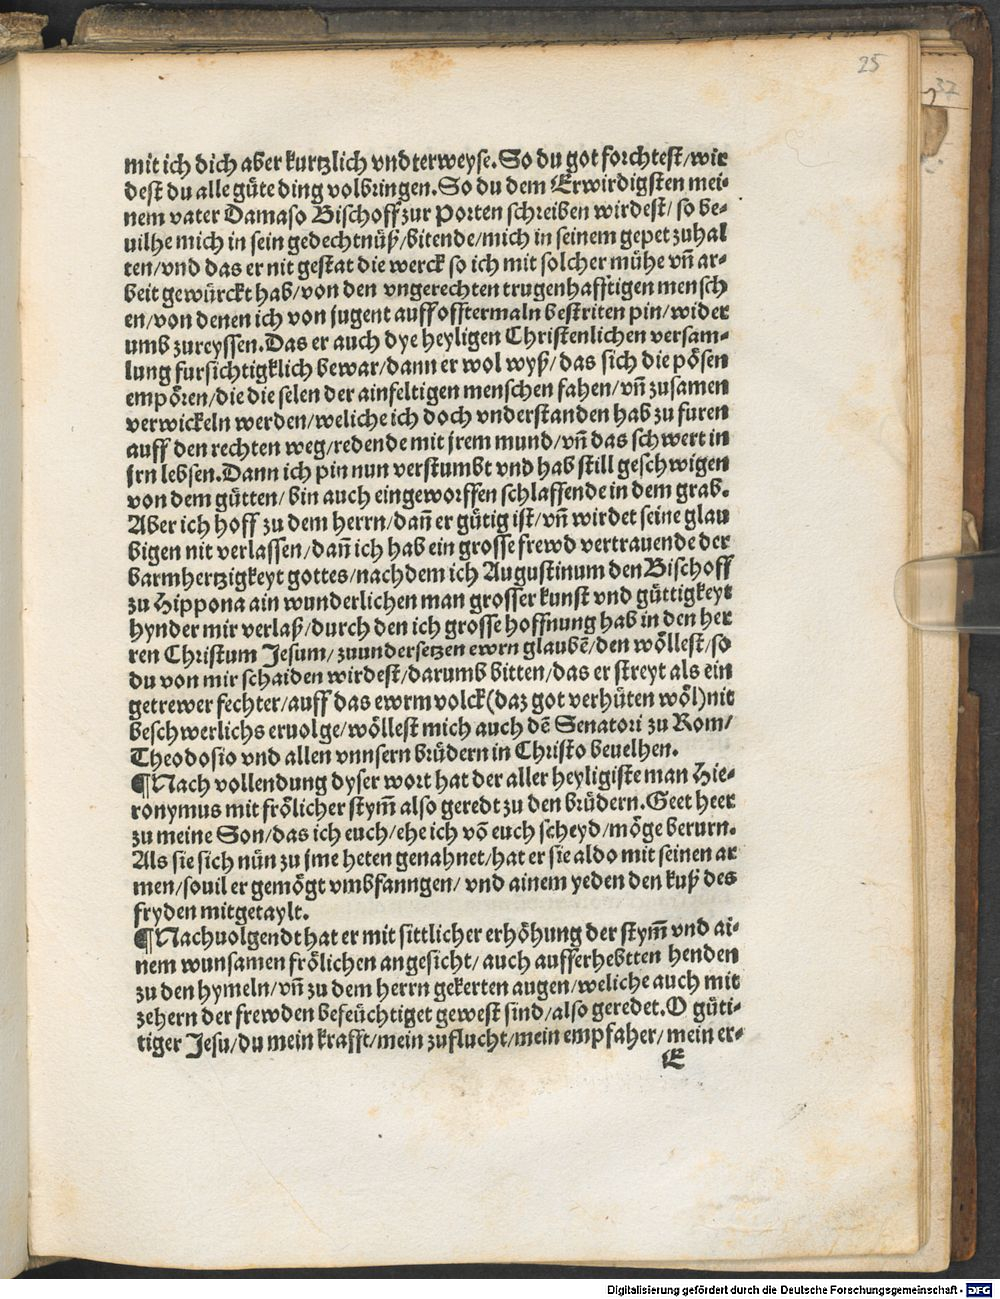 25
37
mit ich dich aber kurtzlich vndterweyse. So du got forchtest/wir
dest du alle gůte ding volbringen. So du dem Erwirdigsten mei-
nem vater Damaso Bischoff zur Porten schreiben wirdest/ so be-
uilhe mich in sein gedechtnüß/bitende/mich in seinem gepet zuhal
ten/vnd das er nit gestat die werck so ich mit solcher mühe vñ ar-
beit gewürckt hab/von den vngerechten trugenhafftigen mensch
en/von denen ich von jugent auff offtermaln bestriten pin/wider
umb zureyssen. Das er auch dye heyligen Christenlichen versam-
lung fursichtigklich bewar/dann er wol wyß/ das sich die pösen
empören/die die selen der ainfeltigen menschen fahen/vñ zusamen
verwickeln werden/weliche ich doch vnderstanden hab zu furen
auff den rechten weg/redende mit jrem mund/vñ das schwert in
jrn lebsen. Dann ich pin nun verstumbt vnd hab still geschwigen
von dem gůtten/ bin auch eingeworffen schlaffende in dem grab.
Aber ich hoff zu dem herrn/dañ er gůtig ist/vñ wirdet seine glau
bigen nit verlassen/dañ ich hab ein grosse frewd vertrauende der
barmhertzigkeyt gottes/nachdem ich Augustinum den Bischoff
zu Hippona ain wunderlichen man grosser kunst vnd gůttigkeyt
hynder mir verlaß/durch den ich grosse hoffnung hab in den her
ren Christum Jesum/ zuundersetzen ewrn glaubẽ/den wöllest/so
du von mir schaiden wirdest/darumb bitten/das er streyt als ein
getrewer fechter/auff das ewrm volck(daz got verhüten wöl)nit
beschwerlichs eruolge/wöllest mich auch dẽ Senatori zu Rom/
Theodosio vnd allen vnnsern brüdern in Christo beuelhen.
¶Nach vollendung dyser wort hat der aller heyligiste man Hie-
ronymus mit frölicher stym̃ also geredt zu den brüdern. Geet heer
zu meine Son/das ich euch/ehe ich võ euch scheyd/möge berurn.
Als sie sich nůn zu jme heten genahnet/hat er sie aldo mit seinen ar
men/souil er gemögt vmbfanngen/ vnd ainem yeden den kuß des
fryden mitgetaylt.
¶Nachuolgendt hat er mit sittlicher erhöhung der stym̃ vnd ai-
nem wunsamen frölichen angesicht/ auch aufferhebtten henden
zu den hymeln/vñ zu dem herrn gekerten augen/weliche auch mit
zehern der frewden befeüchtiget gewest sind/also geredet. O gůti-
tiger Jesu/du mein krafft/mein zuflucht/mein empfaher/mein er-
E
Digitalisierung gefördert durch die Deutsche Forschungsgemeinschaft - DFG